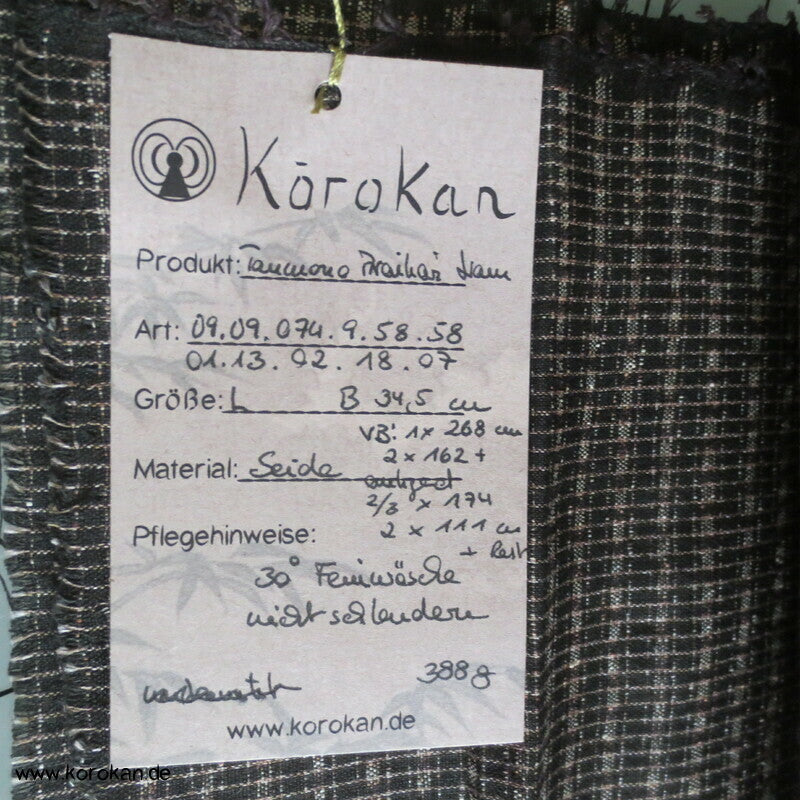 Kōrokan
Produkt: Tanmono
Art: 09.09.074.9.58.58
01.13.02.18.07
Größe: L B 34,5 cm
VB: 1x 268 cm
2 x 162 +
Material: Seide
2/3 x 174
Pflegehinweise: 2 x 111 cm
+ Rest
30° Feinwäsche
nicht schleudern
388g
www.korokan.de
www.korokan.de